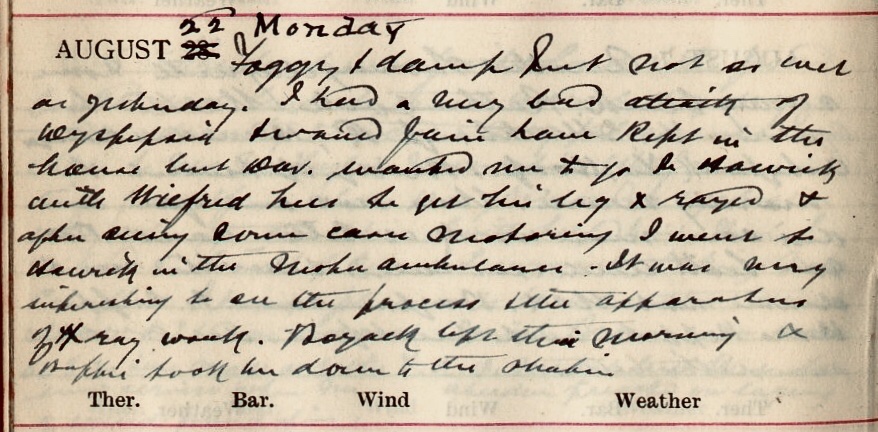 22 Monday
AUGUST 23
Foggy & damp but not so wet
as yesterday. I had a very bad attack of
dyspepsia & would fain have kept in the
house but Dav. wanted me to go to Hawick
with Wilfred here to get his leg X rayed &
after seeing some cases motoring I went to
Hawick in the Motor ambulance. It was very
interesting to see the process & the apparatus
of X ray work. left this morning &
took her down to the station
Ther. Bar. Wind Weather